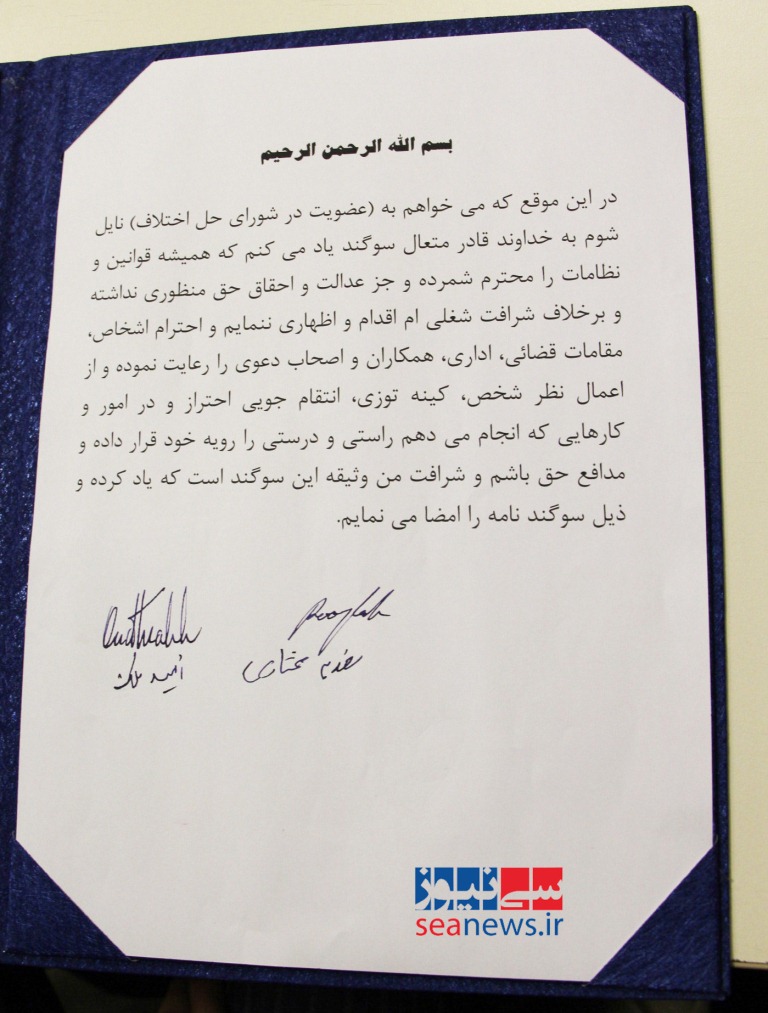 بسم الله الرحمن الرحیم
در این موقع که می خواهم به (عضویت در شورای حل اختلاف) نایل
شوم به خداوند قادر متعال سوگند یاد می کنم که همیشه قوانین و
نظامات را محترم شمرده و جز عدالت و احقاق حق منظوری نداشته
و برخلاف شرافت شغلی ام اقدام و اظهاری ننمایم و احترام اشخاص،
مقامات قضائی، اداری، همکاران و اصحاب دعوی را رعایت نموده و از
اعمال نظر شخص، کینه توزی، انتقام جویی احتراز و در امور و
کارهایی که انجام می دهم راستی و درستی را رویه خود قرار داده و
مدافع حق باشم و شرافت من وثیقه این سوگند است که یاد کرده و
ذیل سوگند نامه را امضا می نمایم.
سی نیوز
seanews.ir